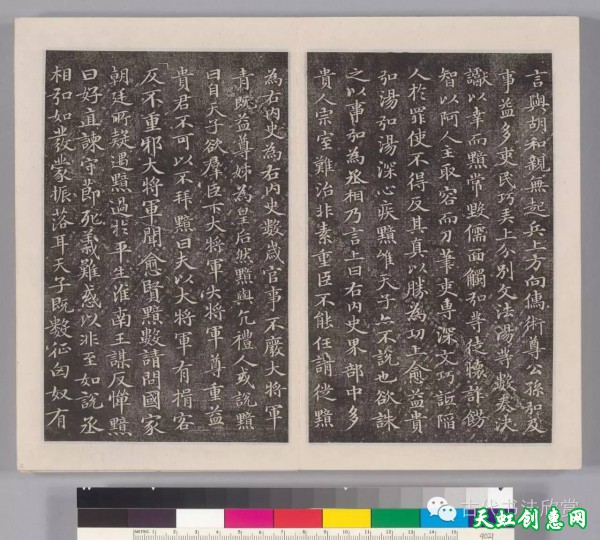 言與胡和親無起兵上方向儒術尊公孫弘及
事益多吏民巧弄上分別文法湯等數奏決
讞以幸而黯常毀儒面觸弘等徒懷詐飾
智以阿人主取容而刀筆吏專深文巧詆陷
人於罪使不得反其真以勝為功上愈益貴
弘湯弘湯深心疾黯雖天子亦不說也欲誅
之以事弘為丞相乃言上曰右內史界部中多
貴人宗室難治非素重臣不能任請徙黯
為右內史為右內史數歲官事不廢大將軍
青既益尊姊為皇后然黯與亢禮人或說黯
曰自天子欲群臣下大將軍大將軍尊重益
貴君不可以不拜黯曰夫以大將軍有揖客
反不重邪大將軍聞愈賢黯數請問國家
朝廷所疑遇黯過於平生淮南王謀反憚黯
曰好直諫守節死義難惑以非至如說丞
相弘如發蒙振落耳天子既數征匈奴有
古代书法欣赏
天虹创惠网